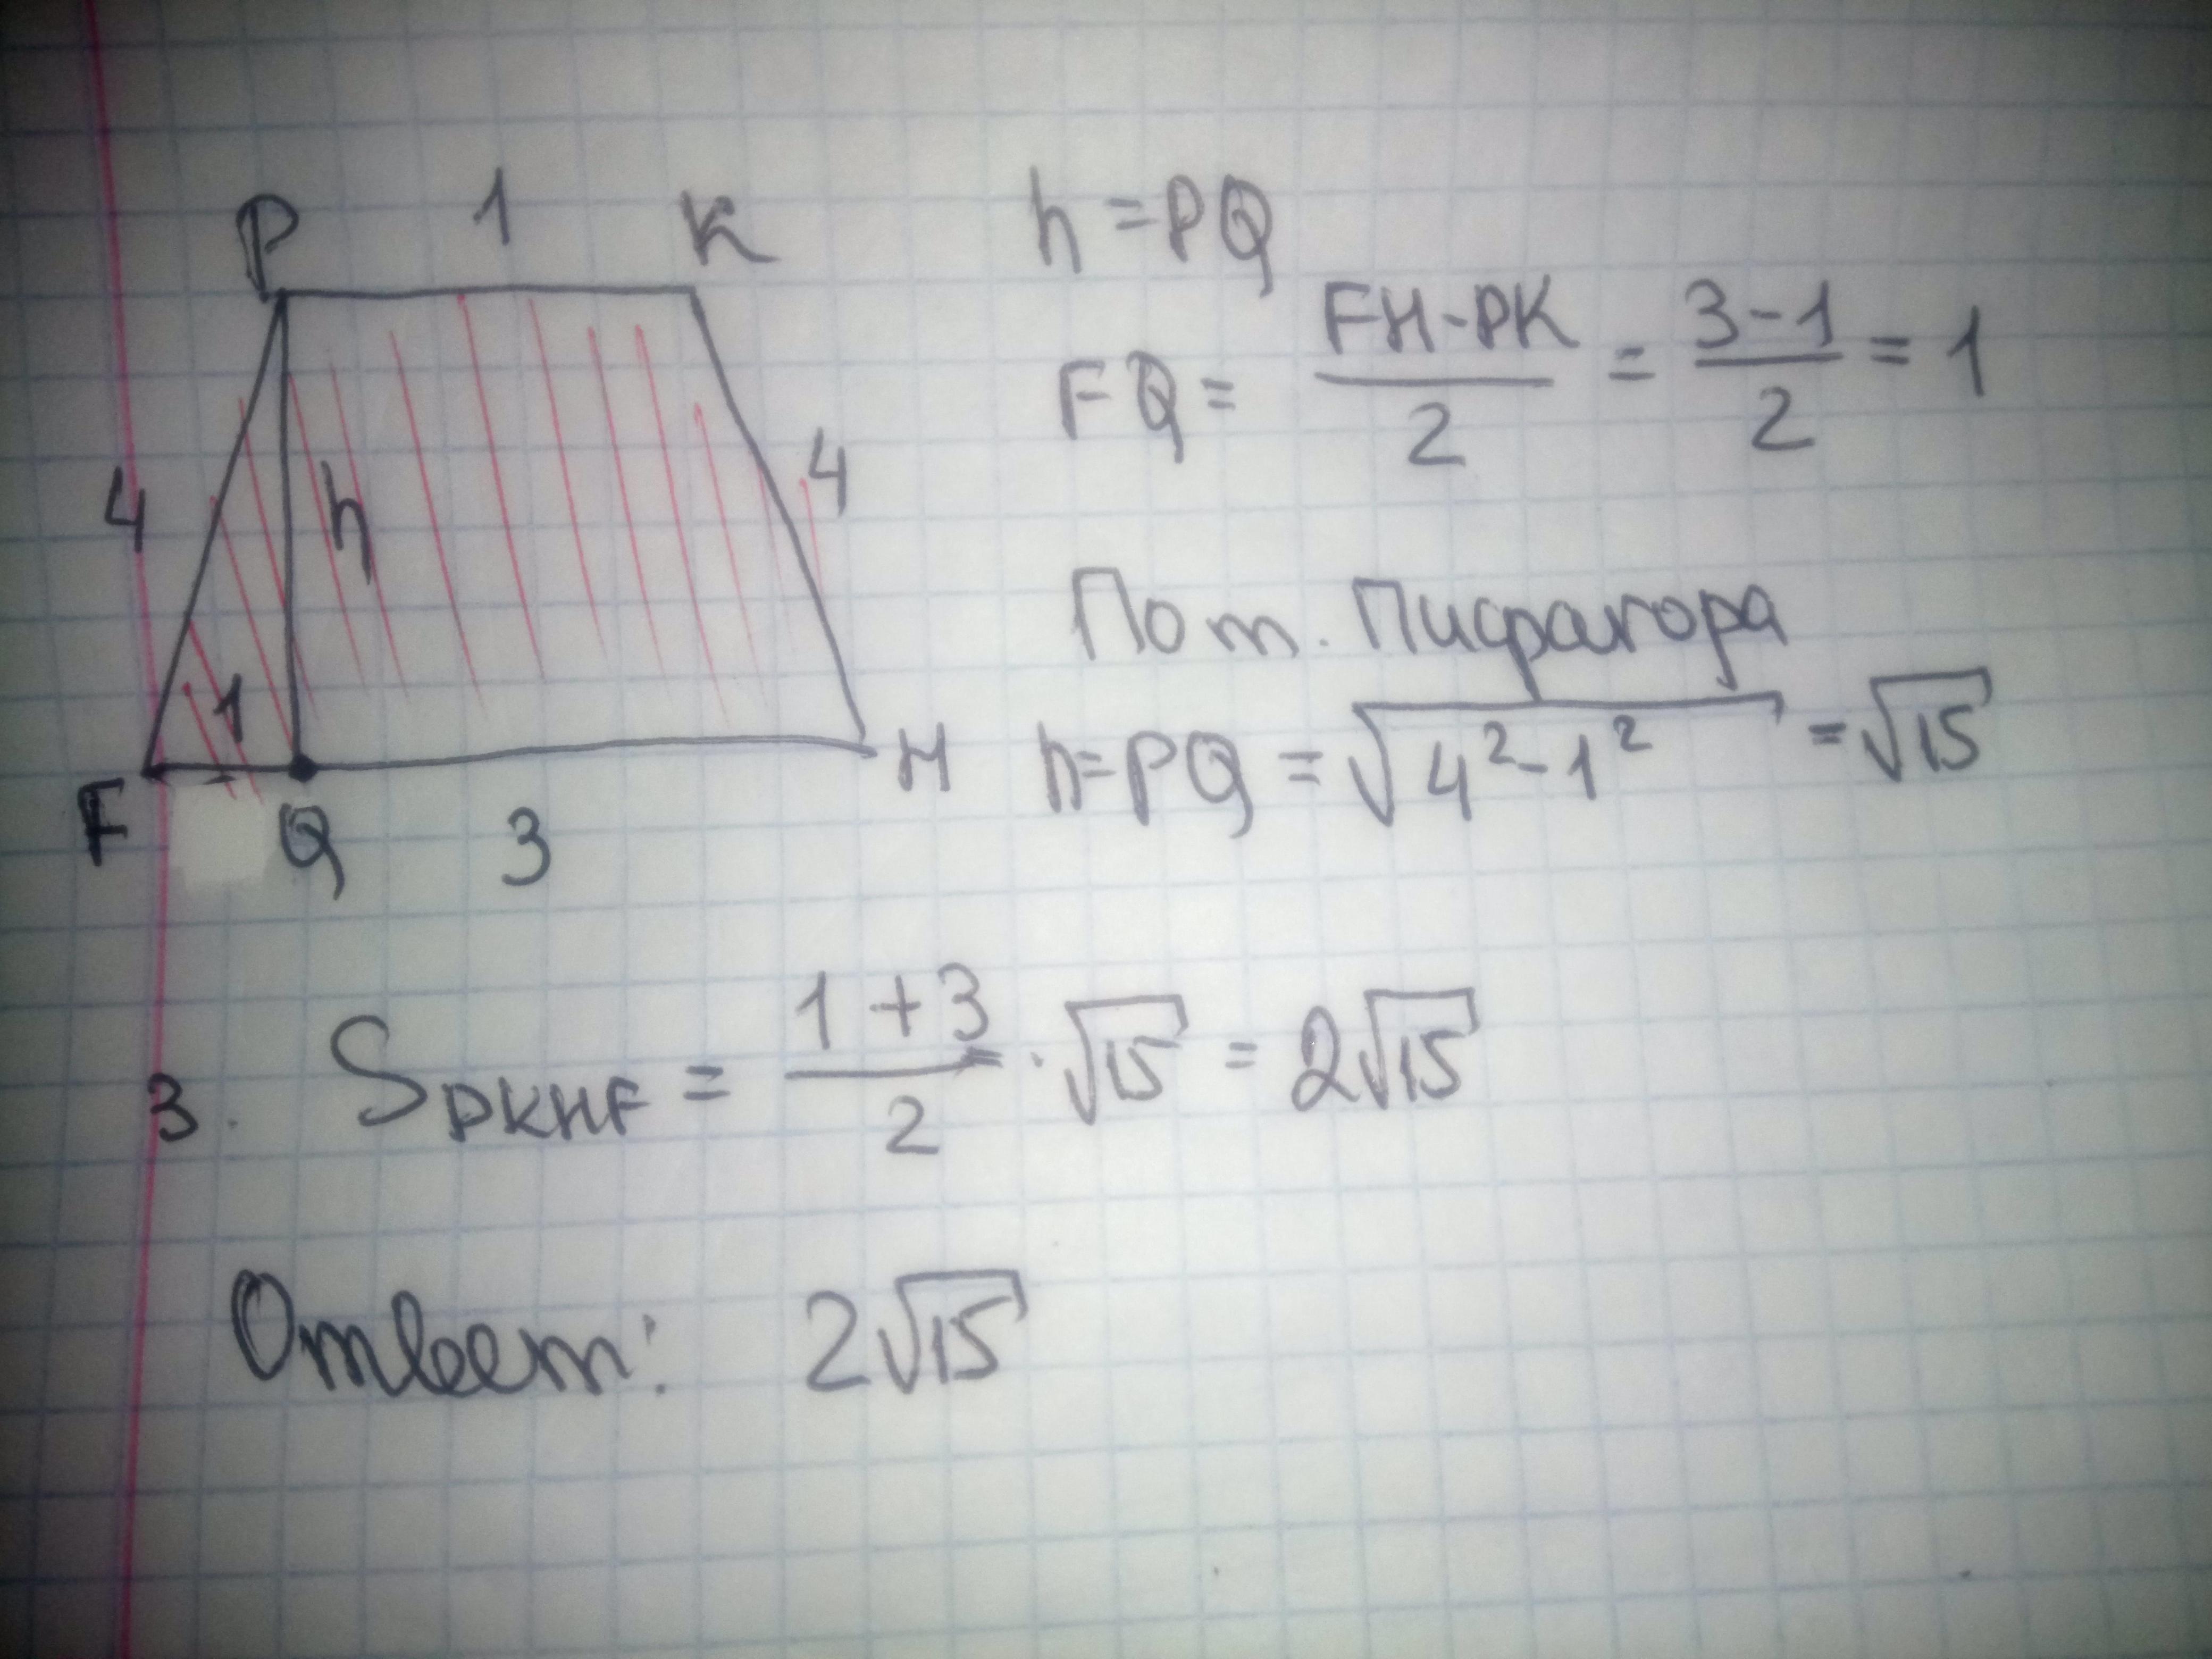 P 1 K
4 h 4
1
F Q 3 H
h = PQ
FQ = (FH-PK)/2 = (3-1)/2 = 1
По т. Пифагора
h=PQ = √(4²-1²) = √15
3. S_PKHF = (1+3)/2 · √15 = 2√15
Ответ: 2√15